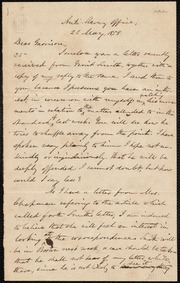 Anti Slavery Office,
25 May, 1858.
Dear Garrison,
I enclose you a letter recently
received from Gerrit Smith together with a
copy of my reply to the same. I send them to
you because I presume you have an
interest in common with myself
matters in relation to the letter alluded to in the
Standard of last week. You will see how he
tries to shuffle away from the point. I have
spoken very plainly to him I hope not un-
kindly or ungenerously, that he will be
deeply offended I cannot doubt but how
could I say less?
As I have a letter from Mrs.
Chapman referring to the article which
called forth Smith's letter I am induced
to believe that she will feel an interest in
looking at the correspondence. Smith will
be in
that he shall not hear of my letter
there, since he is not likely to